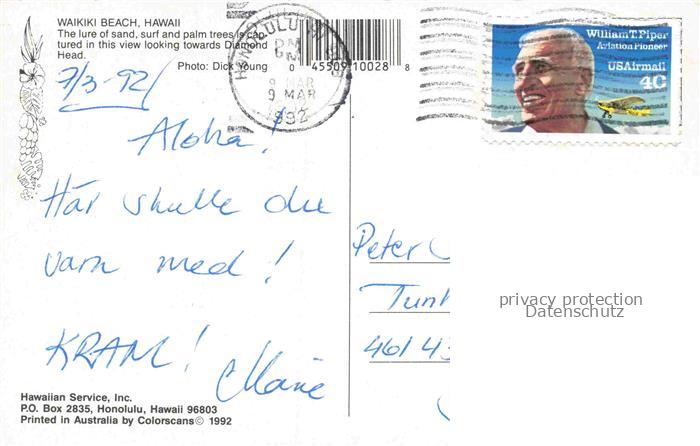 WAIKIKI BEACH, HAWAII
The lure of sand, surf and palm trees is cap-
tured in this view looking towards Diamond
Head.
Photo: Dick Young
0 45509 10028 8
HONOLULU
PM
9 MAR
1992
William T. Piper
Aviation Pioneer
USAirmail
40
7/3-92
Aloha!
Här skulle du
vara med!
KRAM!
Marie
Peter
461 43
privacy protection
Datenschutz
Hawaiian Service, Inc.
P.O. Box 2835, Honolulu, Hawaii 96803
Printed in Australia by Colorscans© 1992